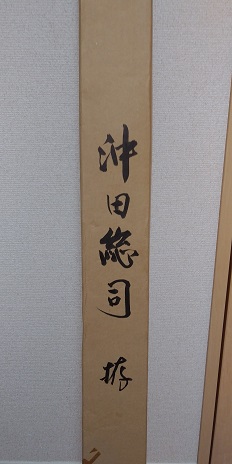 沖田総司